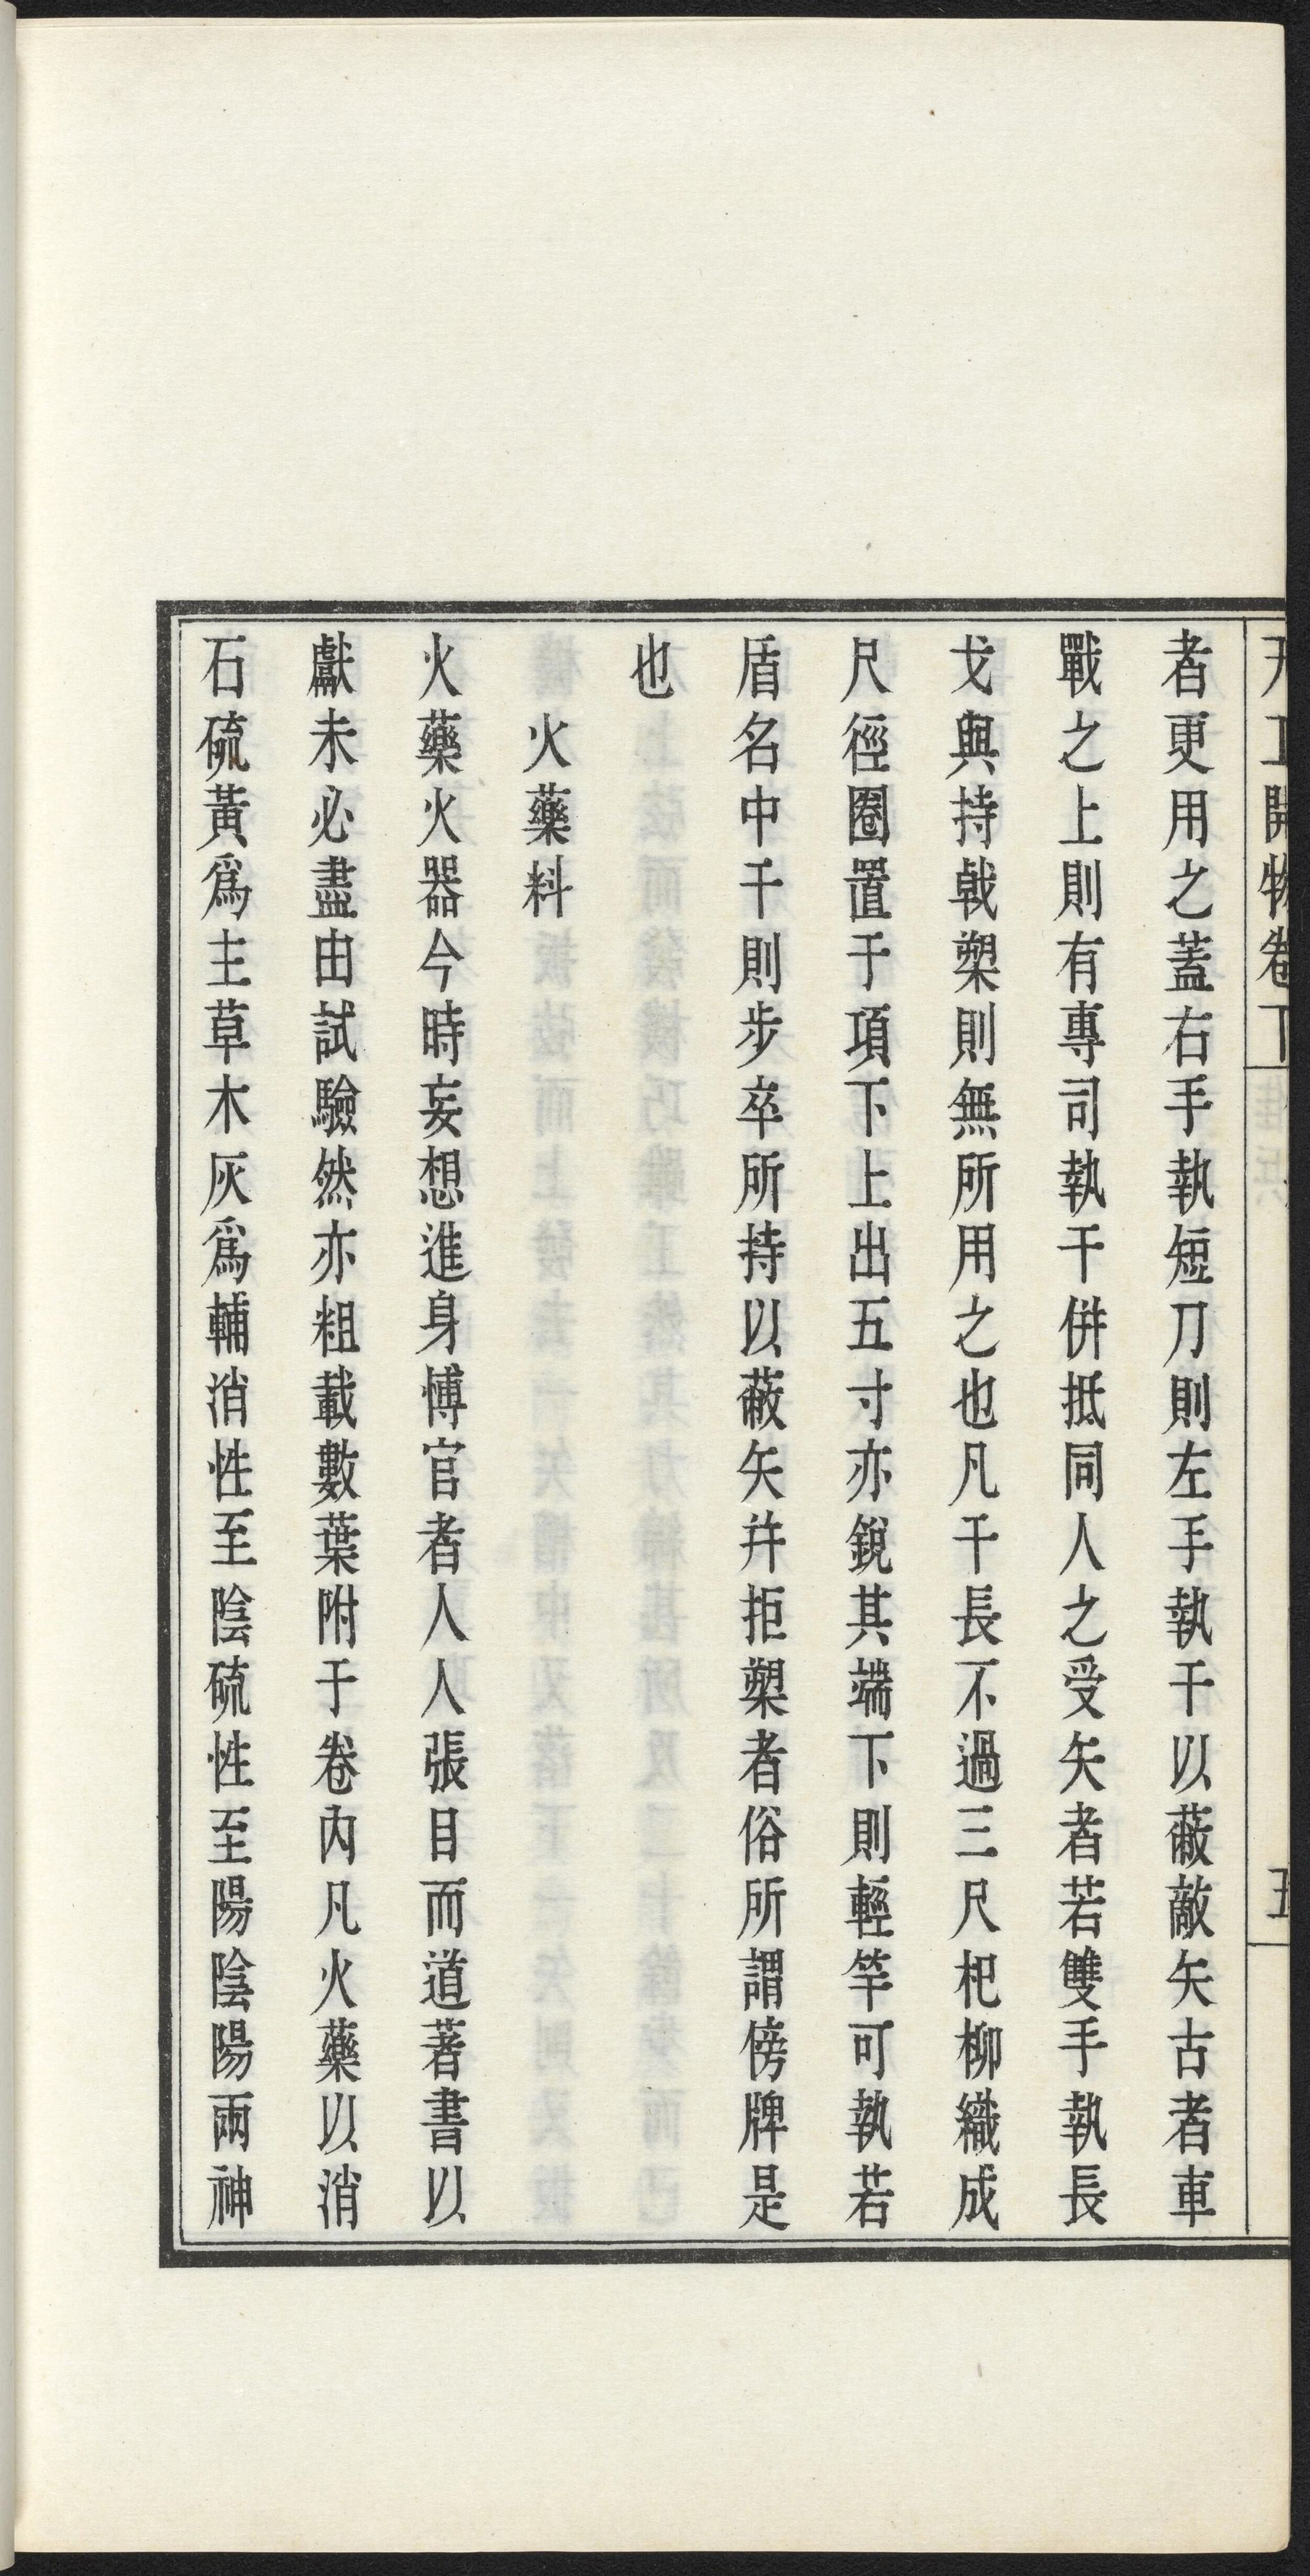 天工開物卷下
五
者更用之蓋右手執短刀則左手執干以蔽敵矢古者車
戰之上則有專司執干併抵同人之受矢者若雙手執長
戈與持戟槊則無所用之也凡干長不過三尺杞柳織成
尺徑圈置于項下上出五寸亦銳其端下則輕竿可執若
盾名中干則步卒所持以蔽矢并拒槊者俗所謂傍牌是
也
火藥料
火藥火器今時妄想進身博官者人人張目而道著書以
獻未必盡由試驗然亦粗載數葉附于卷內凡火藥以消
石硫黃爲主草木灰爲輔消性至陰硫性至陽陰陽兩神